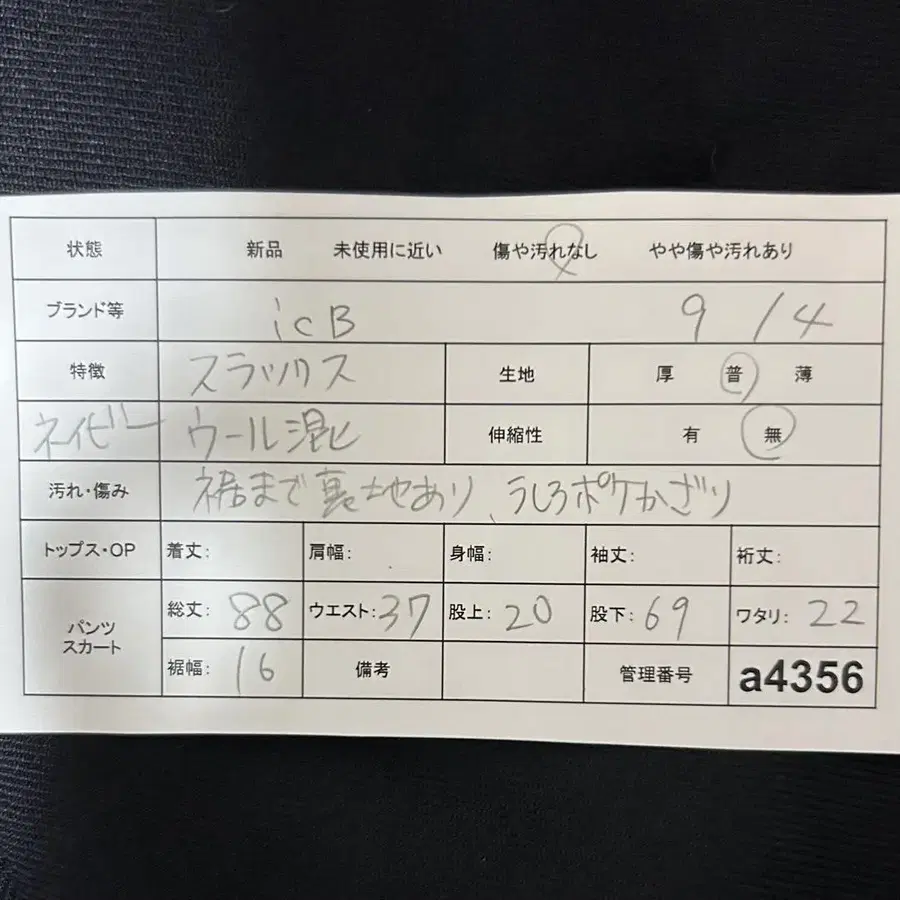 状態 新品 未使用に近い 傷や汚れなし やや傷や汚れあり
ブランド等 icB 9 / 4
特徴 スラックス 生地 厚 普 薄
ネイビー ウール混 伸縮性 有 無
汚れ・傷み 裾まで裏地あり、うしろポケかざり
トップス・OP 着丈: 肩幅: 身幅: 袖丈: 裄丈:
パンツ スカート 総丈: 88 ウエスト: 37 股上: 20 股下: 69 ワタリ: 22
裾幅: 16 備考 管理番号 a4356